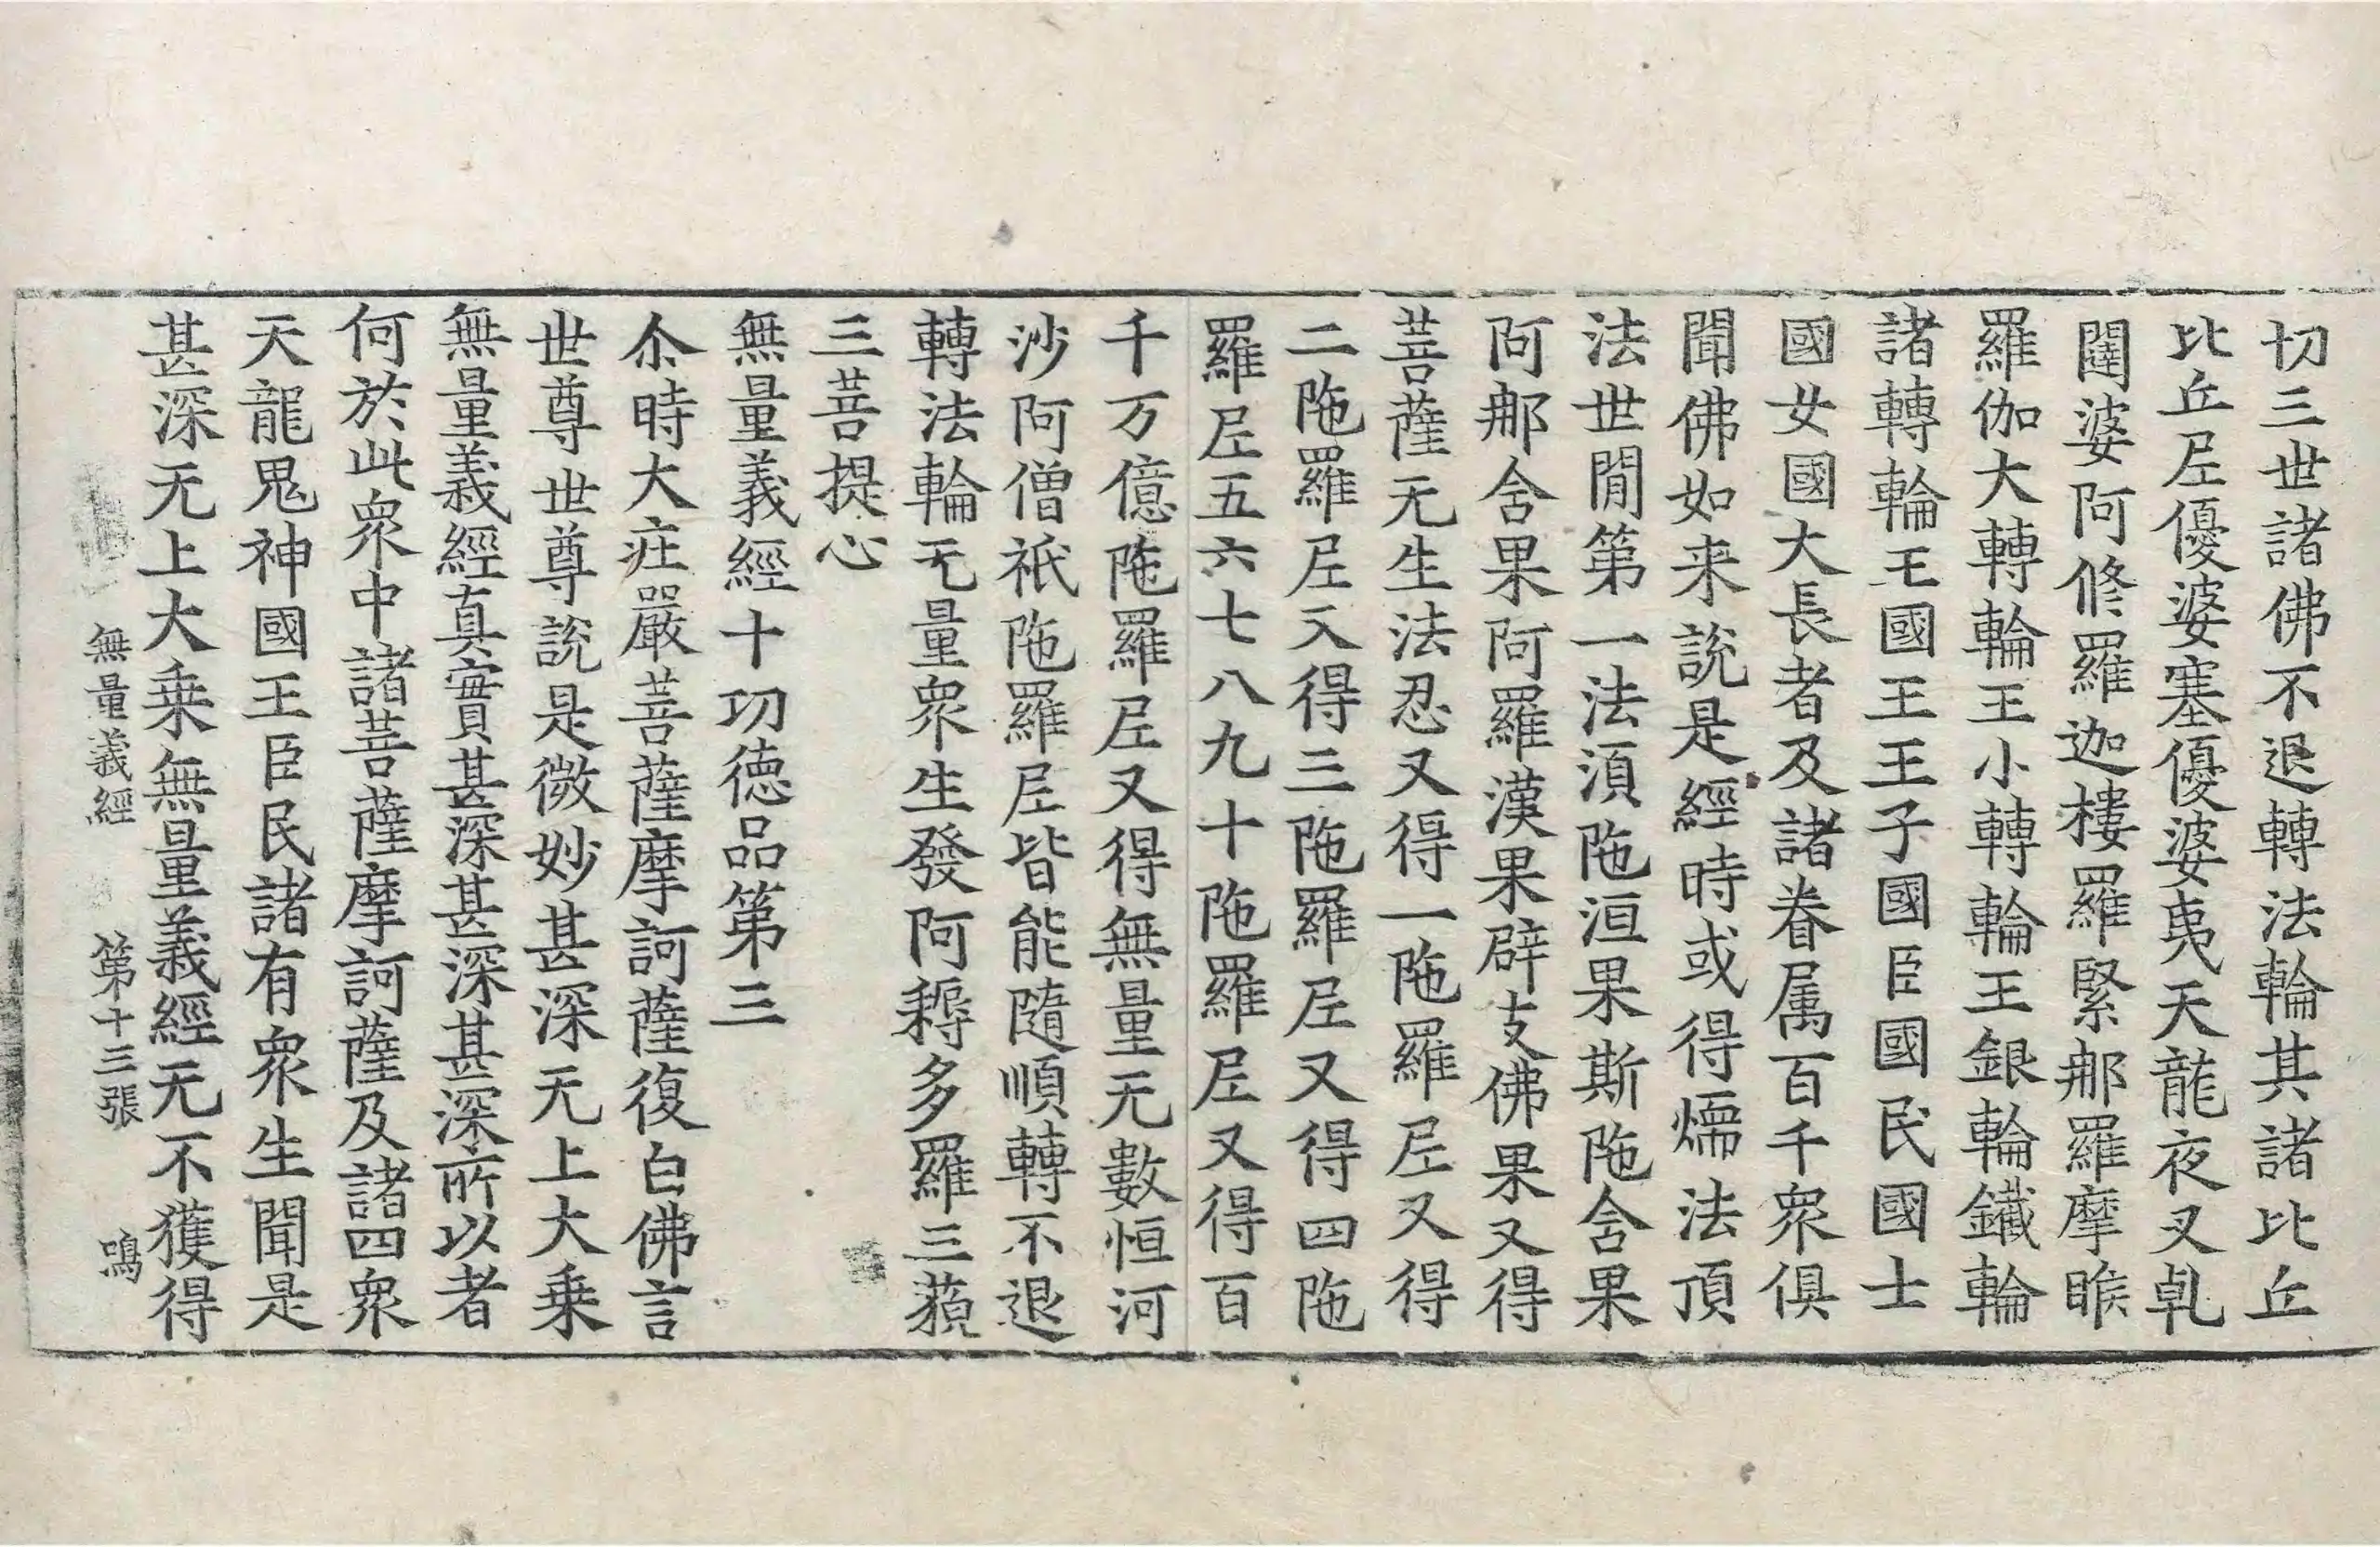 切三世諸佛不退轉法輪其諸比丘
比丘尼優婆塞優婆夷天龍夜叉乹
闥婆阿脩羅迦樓羅緊那羅摩睺
羅伽大轉輪王小轉輪王銀輪鐵輪
諸轉輪王國王王子國臣國民國士
國女國大長者及諸眷属百千衆俱
聞佛如来說是經時或得煗法頂
法世間第一法須陁洹果斯陁含果
阿那含果阿羅漢果辟支佛果又得
菩薩无生法忍又得一陁羅尼又得
二陁羅尼又得三陁羅尼又得四陁
羅尼五六七八九十陁羅尼又得百
千万億陁羅尼又得無量无數恒河
沙阿僧祇陁羅尼皆能隨順轉不退
轉法輪无量衆生發阿耨多羅三藐
三菩提心
無量義經十功德品第三
尒時大莊嚴菩薩摩訶薩復白佛言
世尊世尊說是微妙甚深无上大乗
無量義經真實甚深甚深甚深所以者
何於此衆中諸菩薩摩訶薩及諸四衆
天龍鬼神國王臣民諸有衆生聞是
甚深无上大乗無量義經无不獲得
無量義經 第十三張 鳴